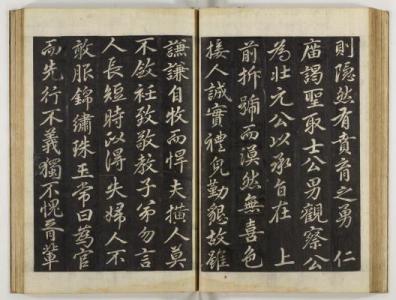 則隠然有賁育之勇 仁
庿謁聖取士公男觀察公
為壮元公以承旨在 上
前拆號而漠然無喜色
接人誠實禮皃勤懇故雖
謙謙自牧而悍夫獷人莫
不斂衽致敬教子弟勿言
人長短時政得失婦人不
敢服錦繡珠玉常曰篤官
而先行不義獨不愧胥輩